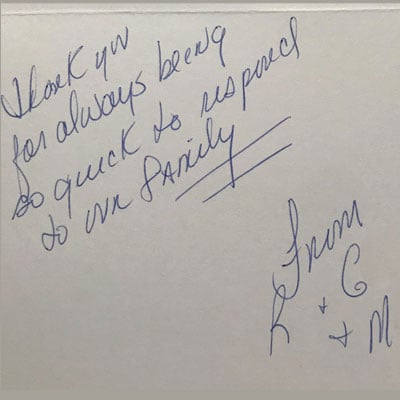 Thank you
for always being
so quick to respond
to our family
From
L + C
+ M